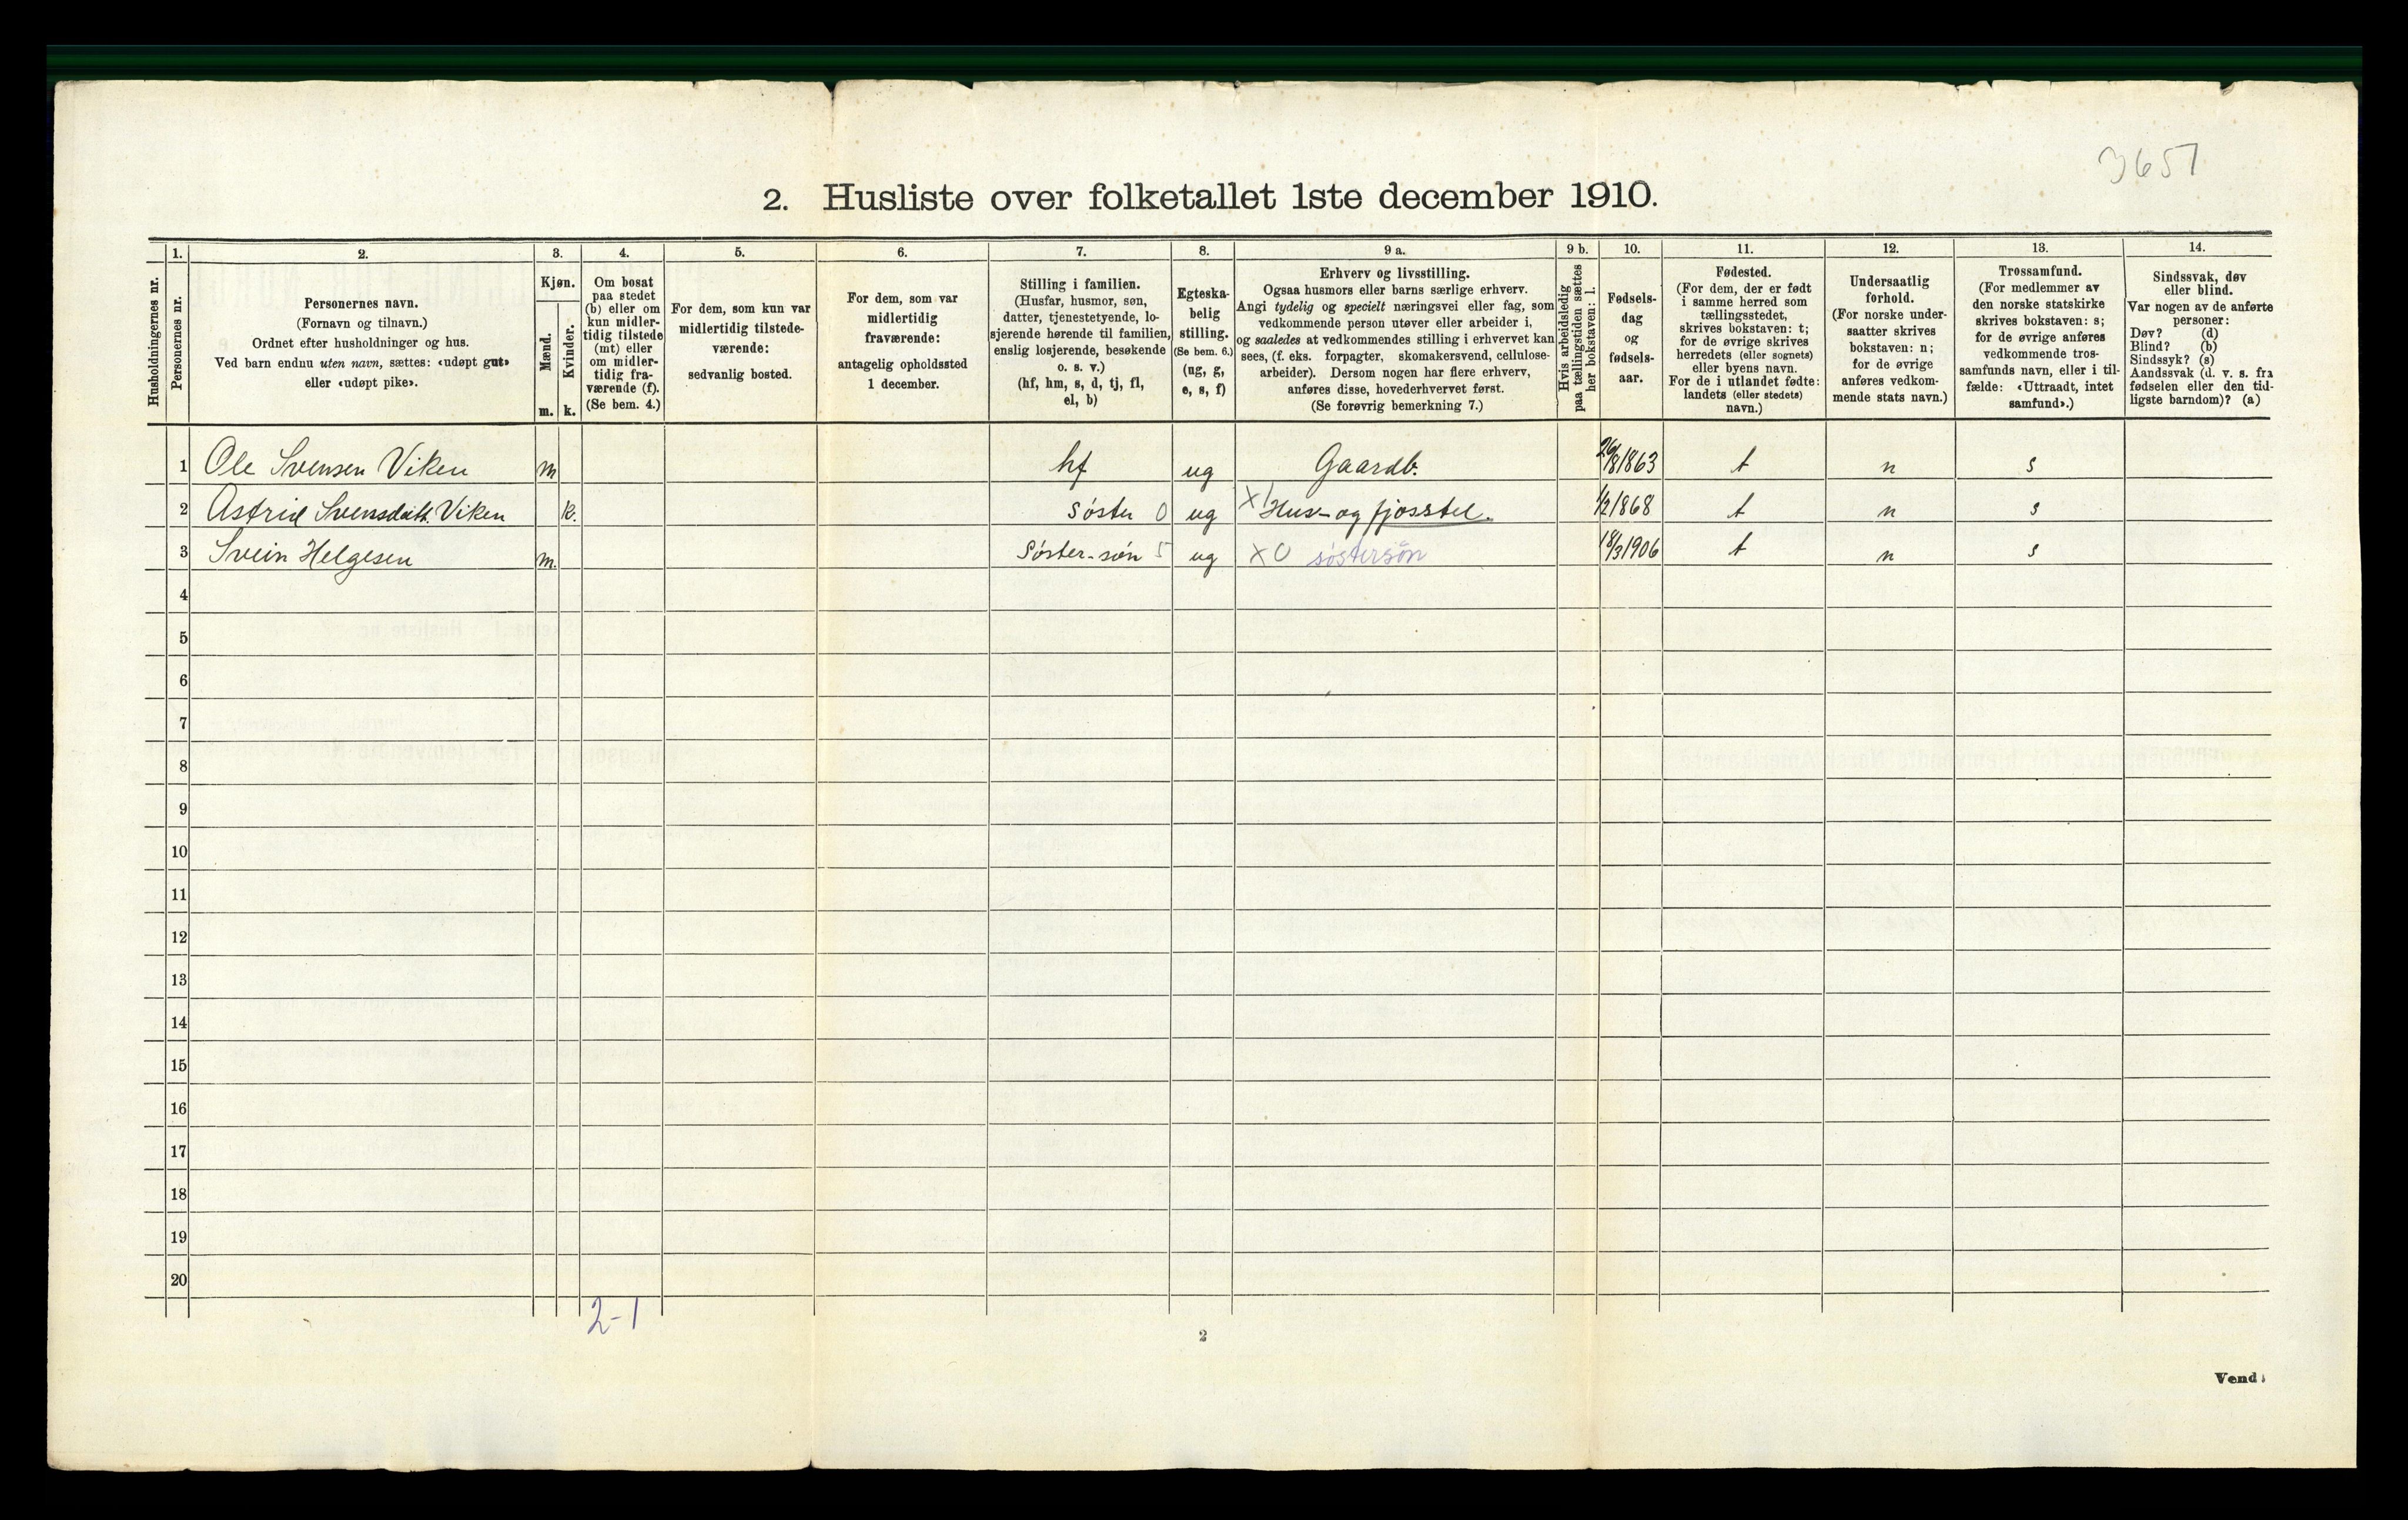 3657
2. Husliste over folketallet 1ste december 1910.
Husholdningernes nr.
1.
Personernes nr.
2.
Personernes navn.
(Fornavn og tilnavn.)
Ordnet efter husholdninger og hus.
Ved barn endnu uten navn, sættes: «udøpt gut»
eller «udøpt pike».
3.
Kjøn.
Mænd.
m.
Kvinder.
k.
4.
Om bosat
paa stedet
(b) eller om
kun midler-
tidig tilstede
(mt) eller
om midler-
tidig fra-
værende (f).
(Se bem. 4.)
5.
For dem, som kun var
midlertidig tilstede-
værende:
sedvanlig bosted.
6.
For dem, som var
midlertidig
fraværende:
antagelig opholdssted
1 december.
7.
Stilling i familien.
(Husfar, husmor, søn,
datter, tjenestetyende, lo-
sjerende hørende til familien,
enslig losjerende, besøkende
o. s. v.)
(hf, hm, s, d, tj, fl,
el, b)
8.
Egteska-
belig
stilling.
(Se bem. 6.)
(ug, g,
e, s, f)
9 a.
Erhverv og livsstilling.
Ogsaa husmors eller barns særlige erhverv.
Angi tydelig og specielt næringsvei eller fag, som
vedkommende person utøver eller arbeider i,
og saaledes at vedkommendes stilling i erhvervet kan
sees, (f. eks. forpagter, skomakersvend, cellulose-
arbeider). Dersom nogen har flere erhverv,
anføres disse, hovederhvervet først.
(Se forøvrig bemerkning 7.)
9 b.
Hvis arbeidsledig
paa tællingstiden sættes
her bokstaven: l.
10.
Fødsels-
dag
og
fødsels-
aar.
11.
Fødested.
(For dem, der er født
i samme herred som
tællingsstedet,
skrives bokstaven: t;
for de øvrige skrives
herredets (eller sognets)
eller byens navn.
For de i utlandet fødte:
landets (eller stedets)
navn.)
12.
Undersaatlig
forhold.
(For norske under-
saatter skrives
bokstaven: n;
for de øvrige
anføres vedkom-
mende stats navn.)
13.
Trossamfund.
(For medlemmer av
den norske statskirke
skrives bokstaven: s;
for de øvrige anføres
vedkommende tros-
samfunds navn, eller i til-
fælde: «Uttraadt, intet
samfund».)
14.
Sindssvak, døv
eller blind.
Var nogen av de anførte
personer:
Døv? (d)
Blind? (b)
Sindssyk? (s)
Aandssvak (d. v. s. fra
fødselen eller den tid-
ligste barndom)? (a)
1 Ole Svensen Viken m hf ug Gaardb. 26/8 1863 t n s
2 Astrid Svensdatt. Viken k. søster 0 ug X1 Hus- og fjosstel. 1/2 1868 t n s
3 Svein Helgesen m. Søster-søn 5 ug X0 søstersøn 18/3 1906 t n s
4
5
6
7
8
9
10
11
12
13
14
15
16
17
18
19
20
2-1
2
Vend!